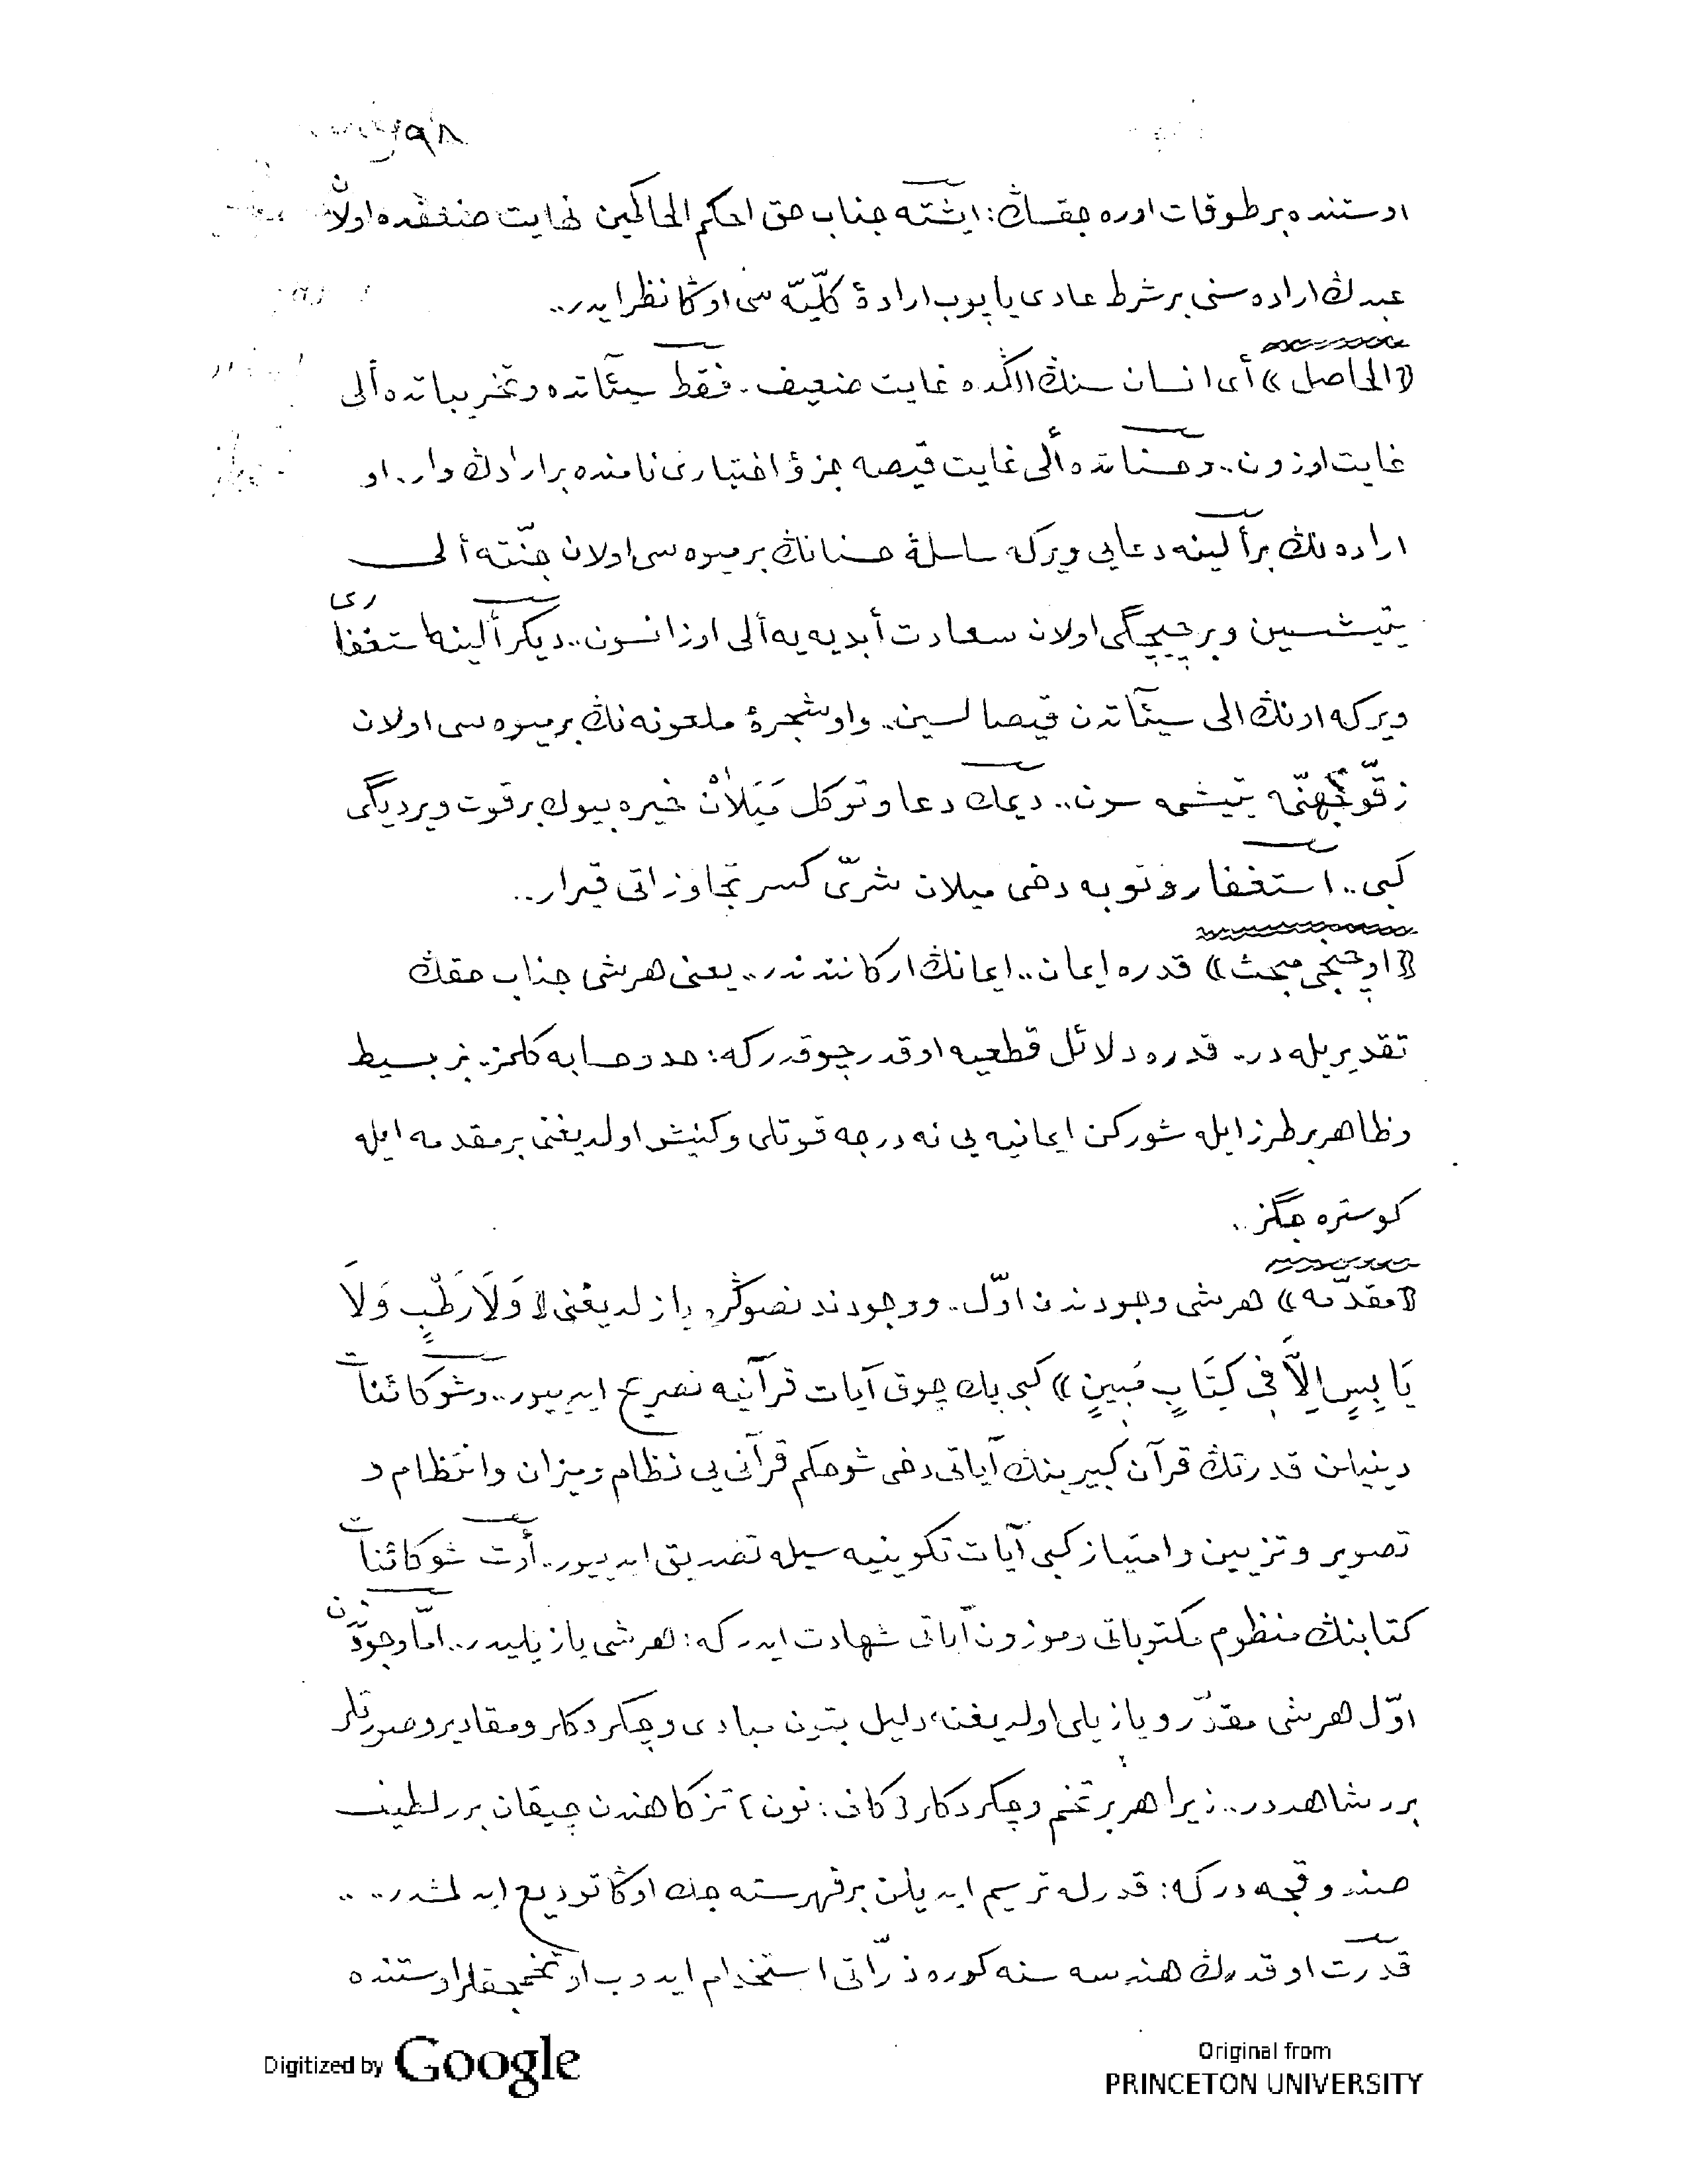 ٩٨
اوستنده برطوقات اوره جقسڭ: ایشته جناب حق احكم الحاكمین نهایت ضعفده اولان
عبدڭ اراده سنی بر شرط عادی یاپوب ارادۀ كلّیّه سی اوڭا نظر ایدر..
«الحاصل» أی انسان سنڭ الڭده غایت ضعیف. فقط سیّئاتده وتخریباتده ألی
غایت اوزون.. وحسناتده ألی غایت قیصه جزؤ اختیاری نامنده بر ارادڭ وار. او
اراده نڭ بر ألینه دعایی ویركه سلسلۀ حسناتڭ بر میوه سی اولان جنّته ألی
یتیشسین وبر چیچگی اولان سعادت أبدیه یه ألی اوزانسون.. دیكر ألینه استغفاری
ویركه اونڭ الی سیّئاتدن قیصالسین.. واو شجرۀ ملعونه نڭ بر میوه سی اولان
زقّوم جهنّمه یتیشمه سون.. دیمك دعا وتوكل مَیَلاٰنْ خیره بیوك بر قوت ویردیگی
كبی.. استغفار وتوبه دخی میلان شرّی كسر تجاوزاتی قیرار..
«اوچنجی مبحث» قدره ایمان.. ایمانڭ اركانندندر.. یعنی هرشی جناب حقڭ
تقدیریله در.. قدره دلائل قطعیه اوقدر چوقدركه: حد وحسابه كلمز. بز بسیط
وظاهر بر طرز ایله شو ركن ایمانیه یی نه درجه قوتلی وكنیش اولدیغنی بر مقدمه ایله
كوستره جگز..
«مقدّمه» هرشی وجودندن اوّل.. ووجودندنصوڭره یازلدیغنی «وَلَا رَطْبٍ وَلَا
یَابِسٍ اِلَّا فِی كِتَابٍ مُبِینٍ» كبی پك چوق آیات قرآنیه تصریح ایدییور.. وشو كائنات
دینیلن قدرتڭ قرآن كبیرینڭ آیاتی دخی شو حكم قرآنی یی نظام ومیزان وانتظام و
تصویر وتزیین وامتیاز كبی آیات تكوینیه سیله تصدیق ایدییور.. أوت شو كائنات
كتابنڭ منظوم مكتوباتی وموزون آیاتی شهادت ایدركه: هرشی یازیلیدر.. امّا وجودندن
اوّل هرشی مقدّر و یازیلی اولدیغنه دلیل بتون مبادی وچكردكلر ومقادیر وصورتلر
برر شاهددر.. زیرا هر بر تخم وچكردكلر (كاف: نون) تزكاهندن چیقان برر لطیف
صندوقچه دركه: قدرله ترسیم ایدیلن بر فهرسته جك اوڭا تودیع ایدلمشدر....
قدرت او قدرڭ هندسه سنه كوره ذرّاتی استخدام ایدوب او تخمجقلر اوستنده
Digitized by Google
Original from
PRINCETON UNIVERSITY